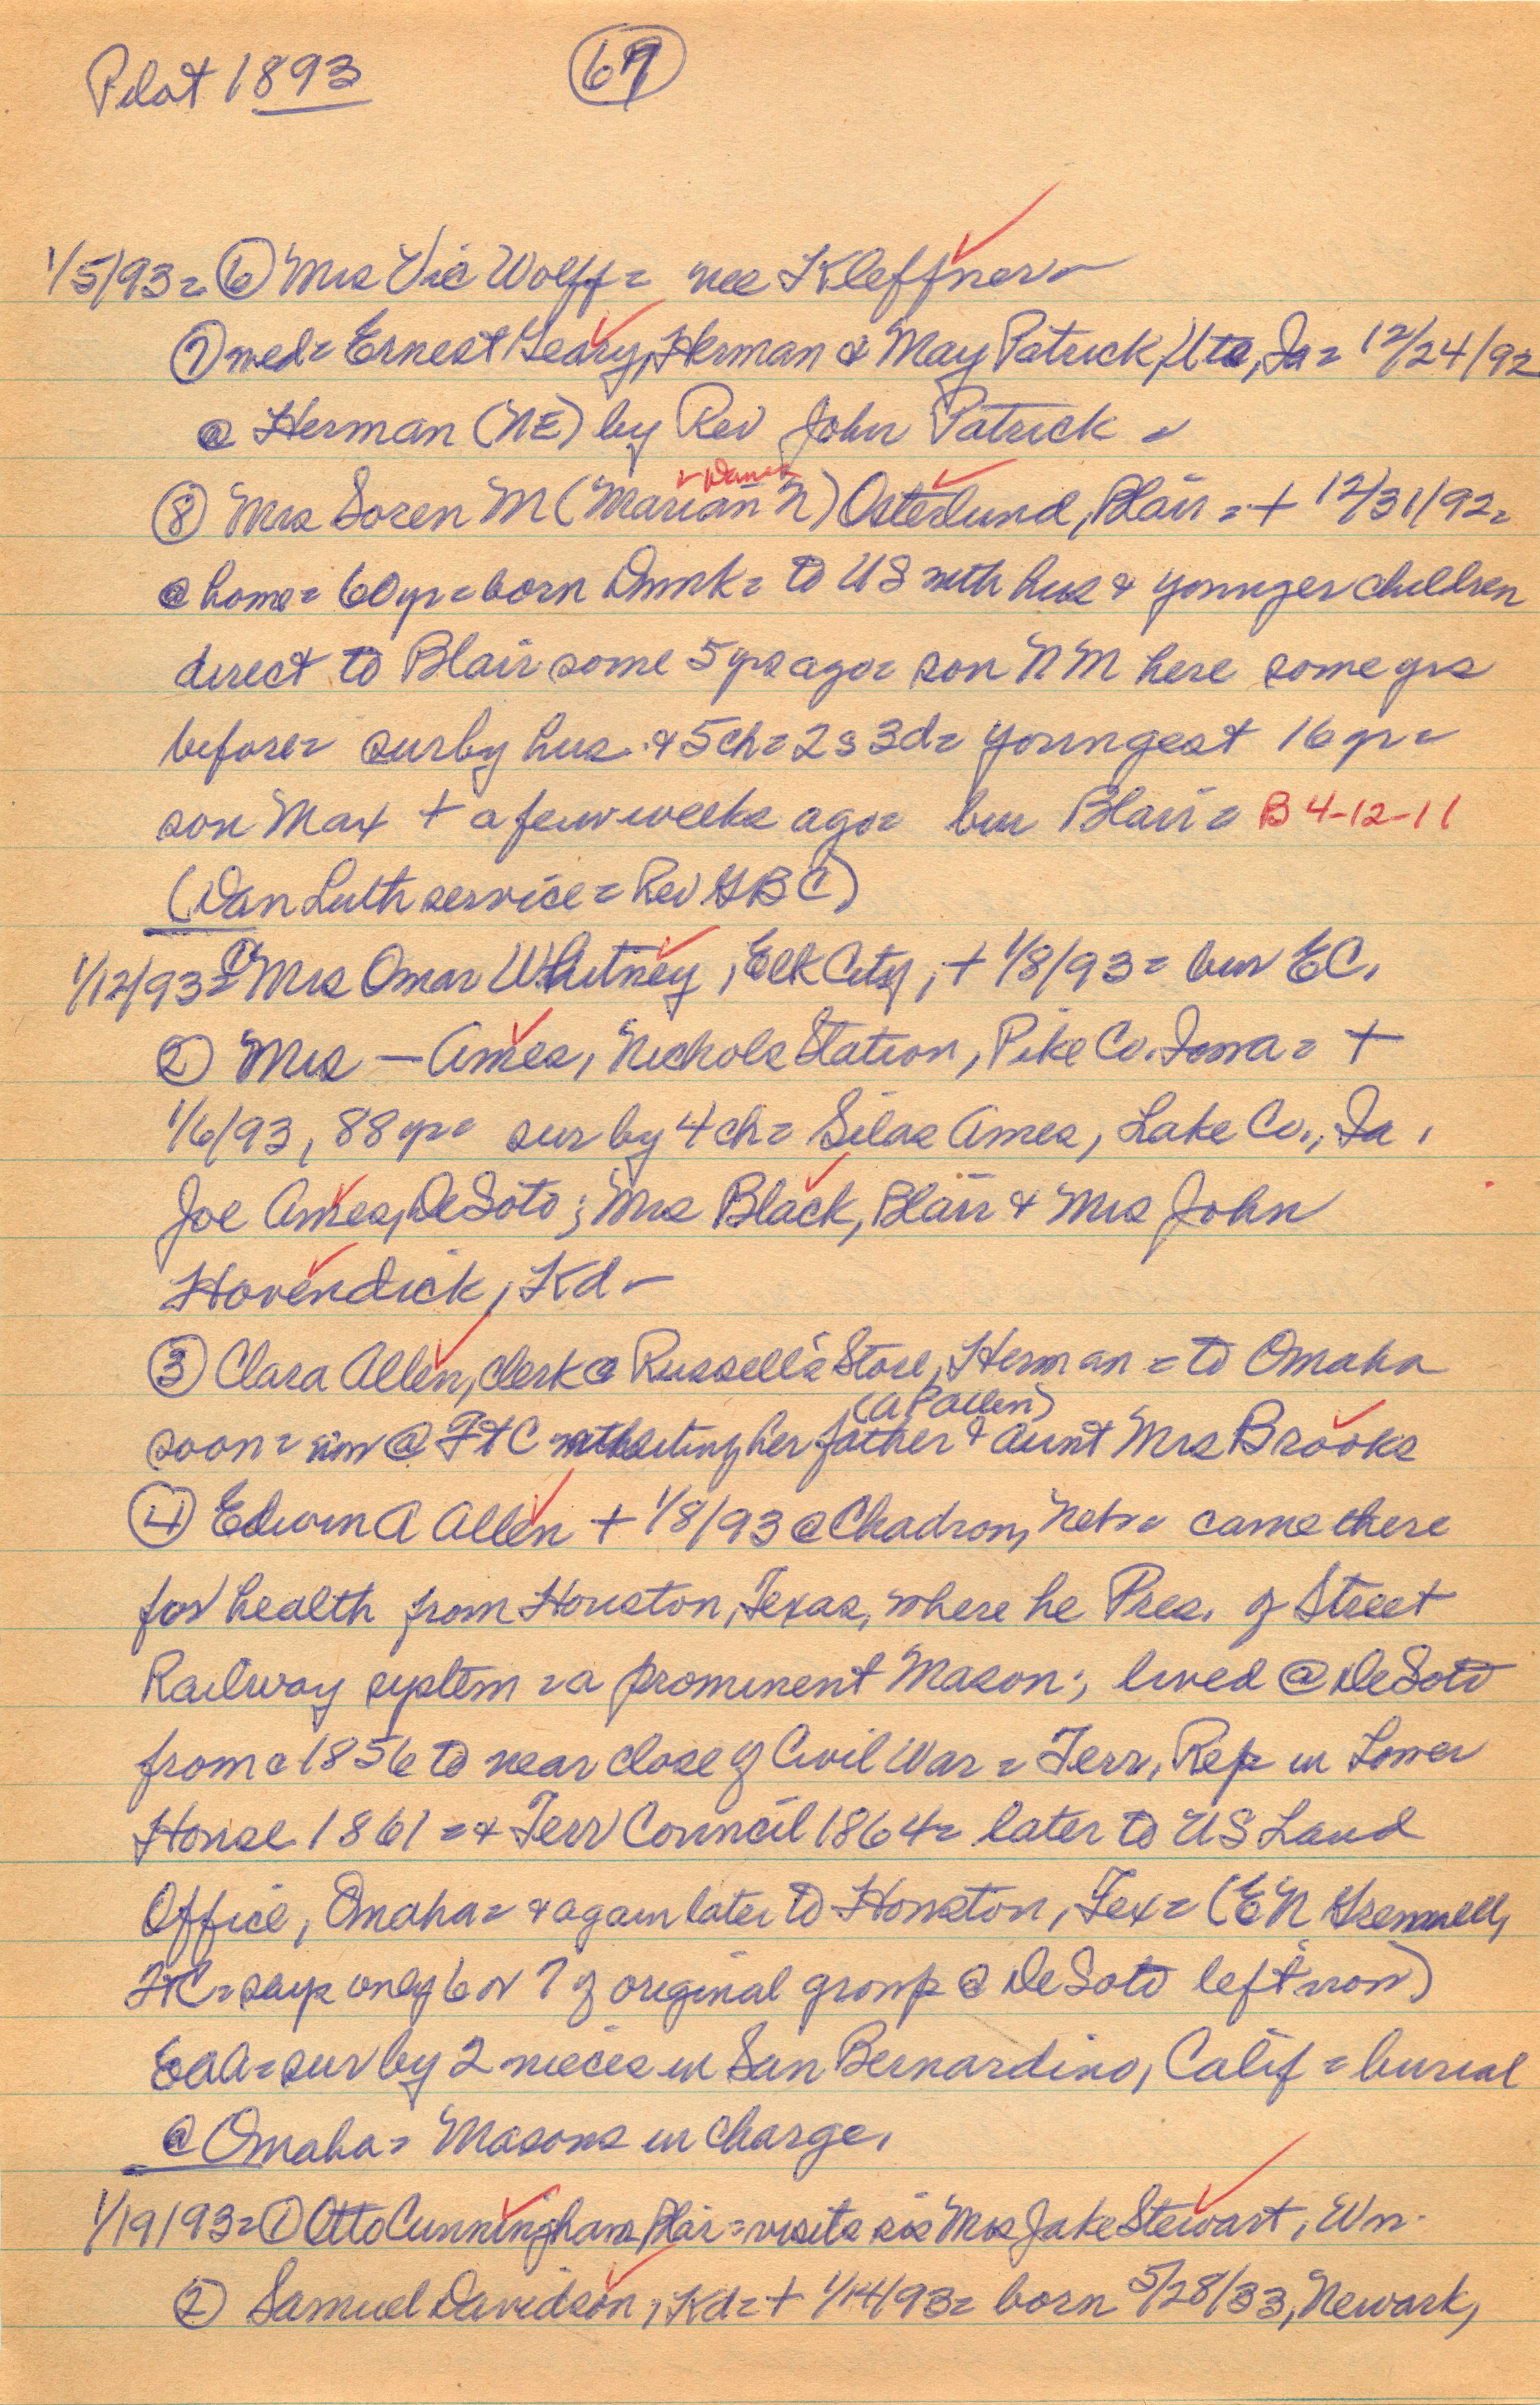 Pilot 1893 67
1/5/93 = ⑥ Mrs Vic Wolff = nee Kleffner =
⑦ wed = Ernest Geary, Herman & May Patrick, Ute, Ia = 12/24/92
@ Herman (NE) by Rev John Patrick =
✓ Danes
⑧ Mrs Soren M (Marian N) Osterlund, Blair = + 12/31/92 =
@ home = 60 yr = born Dnmk = to US with hus & younger children
direct to Blair some 5 yrs ago = son N M here some yrs
before = sur by hus & 5 ch = 2 s 3 d = youngest 16 yr =
son Max + a few weeks ago = bur Blair = B 4-12-11
(Dan Luth service = Rev GBC)
1/12/93 = ① Mrs Omar Whitney, Elk City, + 1/8/93 = bur EC.
② Mrs — Ames, Nichols Station, Pike Co. Iowa = +
1/6/93, 88 yr = sur by 4 ch = Silas Ames, Lake Co., Ia,
Joe Ames, DeSoto; Mrs Black, Blair & Mrs John
Hovendick, Kd =
③ Clara Allen, clerk @ Russell's Store, Herman = to Omaha
(A P Allen)
soon = now @ FtC her father & aunt Mrs Brooks
④ Edwin A Allen + 1/8/93 @ Chadron, Nebr = came there
for health from Houston, Texas, where he Pres. of Street
Railway system = a prominent Mason; lived @ DeSoto
from c 1856 to near close of Civil War = Terr. Rep in Lower
House 1861 = & Terr Council 1864 = later to US Land
Office, Omaha = & again later to Houston, Tex = (EN Grennell,
FtC = says only 6 or 7 of original group @ DeSoto left now)
EAA = sur by 2 nieces in San Bernardino, Calif = burial
@ Omaha = Masons in charge.
1/19/93 = ① Otto Cunningham, Blair = visits sis Mrs Jake Stewart, Wn.
② Samuel Davidson, Kd = + 1/14/93 = born 5/28/33, Newark,